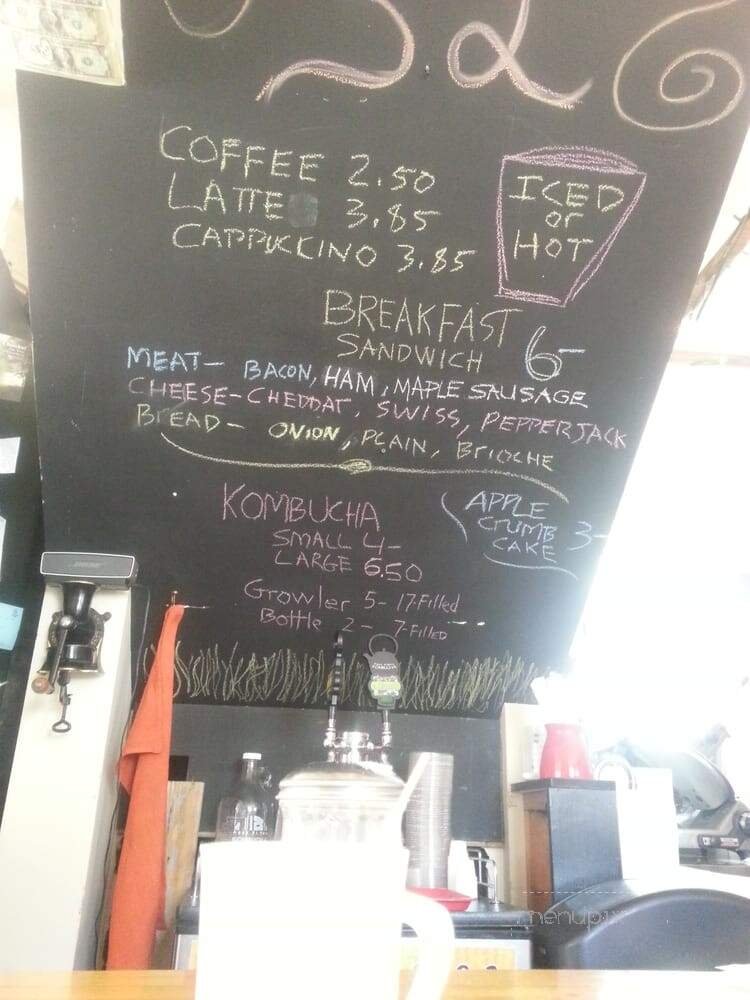 COFFEE 2.50
LATTE 3.85
CAPPUCCINO 3.85
ICED
or
HOT
BREAKFAST
SANDWICH 6-
MEAT- BACON, HAM, MAPLE SAUSAGE
CHEESE-CHEDDAR, SWISS, PEPPERJACK
BREAD- ONION, PLAIN, BRIOCHE
KOMBUCHA
SMALL 4-
LARGE 6.50
APPLE
CRUMB 3-
CAKE
Growler 5- 17-Filled
Bottle 2- 7-Filled
BOSE